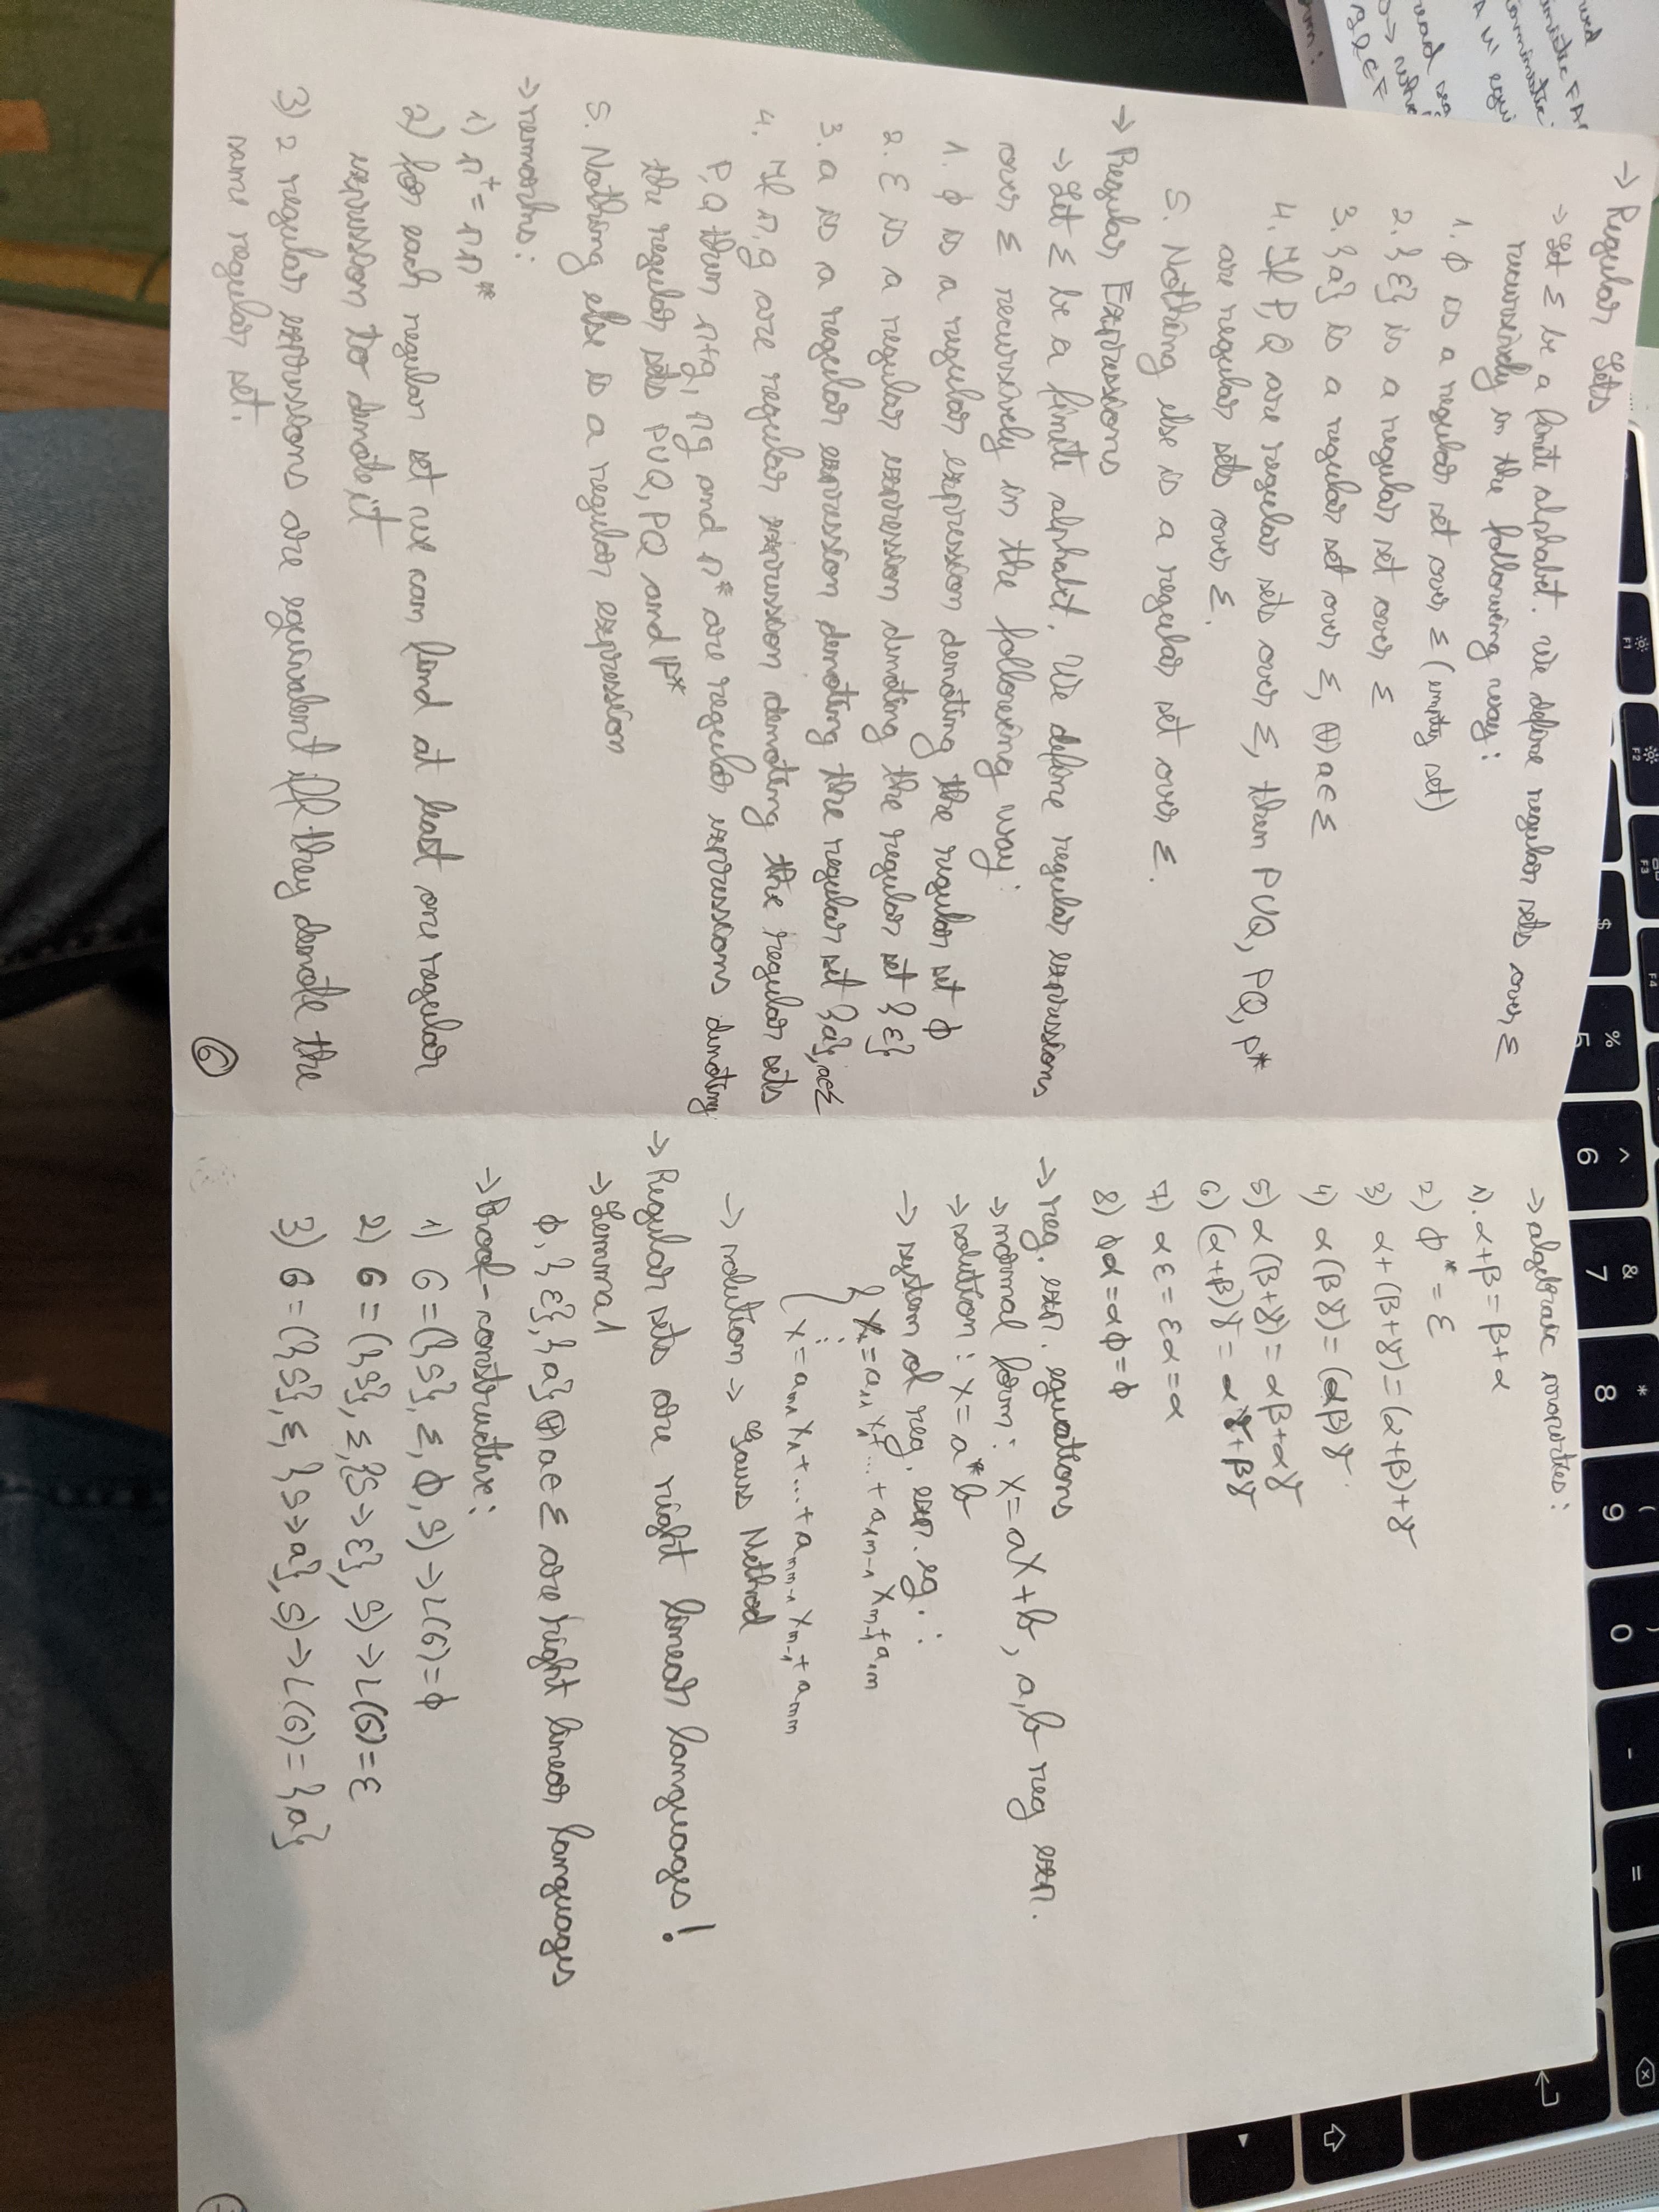 → Regular Sets
→ Let Σ be a finite alphabet. We define regular sets over Σ
recursively in the following way:
1. ϕ is a regular set over Σ (empty set)
2. {ε} is a regular set over Σ
3. {a} is a regular set over Σ, (∀) a∈Σ
4. If P,Q are regular sets over Σ, then P∪Q, PQ, P*
are regular sets over Σ.
5. Nothing else is a regular set over Σ.
→ Regular Expressions
→ Let Σ be a finite alphabet. We define regular expressions
over Σ recursively in the following way:
1. ϕ is a regular expression denoting the regular set ϕ
2. ε is a regular expression denoting the regular set {ε}
3. a is a regular expression denoting the regular set {a}, a∈Σ
4. If r,q are regular expression denoting the regular sets
P,Q then r+q, rq and r* are regular expressions denoting
the regular sets P∪Q, PQ and P*
5. Nothing else is a regular expression
→ remarks:
1) r⁺ = rr*
2) for each regular set we can find at least one regular
expression to denote it
3) 2 regular expressions are equivalent iff they denote the
same regular set.
6
→ algebraic properties:
1) α+β = β+α
2) ϕ* = ε
3) α+(β+γ) = (α+β)+γ
4) α(βγ) = (αβ)γ
5) α(β+γ) = αβ+αγ
6) (α+β)γ = αγ+βγ
7) αε = εα = α
8) ϕα = αϕ = ϕ
→ reg. exp. equations
→ normal form: X = aX+b, a,b reg exp.
→ solution: X = a*b
→ system of reg. exp. eq.:
{ X₁ = a₁₁X₁+...+a₁ₘ₋₁Xₘ₋₁+a₁ₘ
⋮
X = aₘ₁X₁+...+aₘₘ₋₁Xₘ₋₁+aₘₘ
→ solution → Gauss Method
→ Regular sets are right linear languages!
→ Lemma 1
ϕ, {ε}, {a} (∀) a∈Σ are right linear languages
→ Proof-constructive:
1) G = ({S}, Σ, ϕ, S) → L(G) = ϕ
2) G = ({S}, Σ, {S→ε}, S) → L(G) = ε
3) G = ({S}, Σ, {S→a}, S) → L(G) = {a}
F1
F2
F3
F4
$
%
5
^
6
&
7
*
8
(
9
)
0
-
=